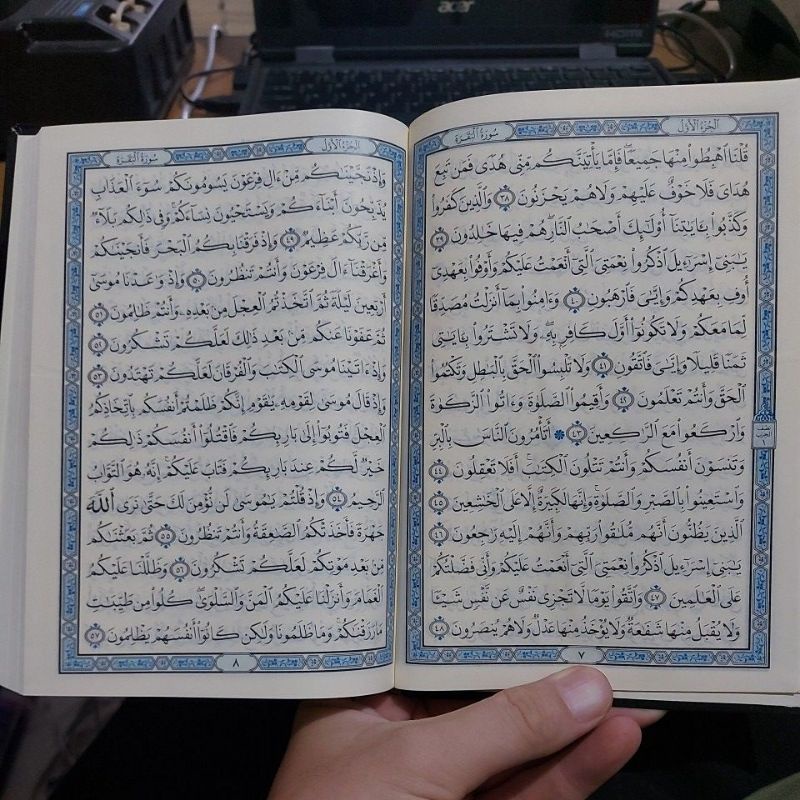 acer
HDMI
الجزء الأول
سورة البقرة
قُلْنَا ٱهْبِطُوا۟ مِنْهَا جَمِيعًا فَإِمَّا يَأْتِيَنَّكُم مِّنِّى هُدًى فَمَن تَبِعَ
هُدَاىَ فَلَا خَوْفٌ عَلَيْهِمْ وَلَا هُمْ يَحْزَنُونَ ٣٨ وَٱلَّذِينَ كَفَرُوا۟
وَكَذَّبُوا۟ بِـَٔايَٰتِنَآ أُو۟لَٰٓئِكَ أَصْحَٰبُ ٱلنَّارِ هُمْ فِيهَا خَٰلِدُونَ ٣٩
يَٰبَنِىٓ إِسْرَٰٓءِيلَ ٱذْكُرُوا۟ نِعْمَتِىَ ٱلَّتِىٓ أَنْعَمْتُ عَلَيْكُمْ وَأَوْفُوا۟ بِعَهْدِىٓ
أُوفِ بِعَهْدِكُمْ وَإِيَّٰىَ فَٱرْهَبُونِ ٤٠ وَءَامِنُوا۟ بِمَآ أَنزَلْتُ مُصَدِّقًا
لِّمَا مَعَكُمْ وَلَا تَكُونُوٓا۟ أَوَّلَ كَافِرٍۭ بِهِۦ وَلَا تَشْتَرُوا۟ بِـَٔايَٰتِى
ثَمَنًا قَلِيلًا وَإِيَّٰىَ فَٱتَّقُونِ ٤١ وَلَا تَلْبِسُوا۟ ٱلْحَقَّ بِٱلْبَٰطِلِ وَتَكْتُمُوا۟
ٱلْحَقَّ وَأَنتُمْ تَعْلَمُونَ ٤٢ وَأَقِيمُوا۟ ٱلصَّلَوٰةَ وَءَاتُوا۟ ٱلزَّكَوٰةَ
وَٱرْكَعُوا۟ مَعَ ٱلرَّٰكِعِينَ ٤٣ ۞ أَتَأْمُرُونَ ٱلنَّاسَ بِٱلْبِرِّ
وَتَنسَوْنَ أَنفُسَكُمْ وَأَنتُمْ تَتْلُونَ ٱلْكِتَٰبَ أَفَلَا تَعْقِلُونَ ٤٤
وَٱسْتَعِينُوا۟ بِٱلصَّبْرِ وَٱلصَّلَوٰةِ وَإِنَّهَا لَكَبِيرَةٌ إِلَّا عَلَى ٱلْخَٰشِعِينَ ٤٥
ٱلَّذِينَ يَظُنُّونَ أَنَّهُم مُّلَٰقُوا۟ رَبِّهِمْ وَأَنَّهُمْ إِلَيْهِ رَٰجِعُونَ ٤٦
يَٰبَنِىٓ إِسْرَٰٓءِيلَ ٱذْكُرُوا۟ نِعْمَتِىَ ٱلَّتِىٓ أَنْعَمْتُ عَلَيْكُمْ وَأَنِّى فَضَّلْتُكُمْ
عَلَى ٱلْعَٰلَمِينَ ٤٧ وَٱتَّقُوا۟ يَوْمًا لَّا تَجْزِى نَفْسٌ عَن نَّفْسٍ شَيْـًٔا
وَلَا يُقْبَلُ مِنْهَا شَفَٰعَةٌ وَلَا يُؤْخَذُ مِنْهَا عَدْلٌ وَلَا هُمْ يُنصَرُونَ ٤٨
٧
الجزء الأول
سورة البقرة
وَإِذْ نَجَّيْنَٰكُم مِّنْ ءَالِ فِرْعَوْنَ يَسُومُونَكُمْ سُوٓءَ ٱلْعَذَابِ
يُذَبِّحُونَ أَبْنَآءَكُمْ وَيَسْتَحْيُونَ نِسَآءَكُمْ وَفِى ذَٰلِكُم بَلَآءٌ
مِّن رَّبِّكُمْ عَظِيمٌ ٤٩ وَإِذْ فَرَقْنَا بِكُمُ ٱلْبَحْرَ فَأَنجَيْنَٰكُمْ
وَأَغْرَقْنَآ ءَالَ فِرْعَوْنَ وَأَنتُمْ تَنظُرُونَ ٥٠ وَإِذْ وَٰعَدْنَا مُوسَىٰٓ
أَرْبَعِينَ لَيْلَةً ثُمَّ ٱتَّخَذْتُمُ ٱلْعِجْلَ مِنۢ بَعْدِهِۦ وَأَنتُمْ ظَٰلِمُونَ ٥١
ثُمَّ عَفَوْنَا عَنكُم مِّنۢ بَعْدِ ذَٰلِكَ لَعَلَّكُمْ تَشْكُرُونَ ٥٢
وَإِذْ ءَاتَيْنَا مُوسَى ٱلْكِتَٰبَ وَٱلْفُرْقَانَ لَعَلَّكُمْ تَهْتَدُونَ ٥٣
وَإِذْ قَالَ مُوسَىٰ لِقَوْمِهِۦ يَٰقَوْمِ إِنَّكُمْ ظَلَمْتُمْ أَنفُسَكُم بِٱتِّخَاذِكُمُ
ٱلْعِجْلَ فَتُوبُوٓا۟ إِلَىٰ بَارِئِكُمْ فَٱقْتُلُوٓا۟ أَنفُسَكُمْ ذَٰلِكُمْ
خَيْرٌ لَّكُمْ عِندَ بَارِئِكُمْ فَتَابَ عَلَيْكُمْ إِنَّهُۥ هُوَ ٱلتَّوَّابُ
ٱلرَّحِيمُ ٥٤ وَإِذْ قُلْتُمْ يَٰمُوسَىٰ لَن نُّؤْمِنَ لَكَ حَتَّىٰ نَرَى ٱللَّهَ
جَهْرَةً فَأَخَذَتْكُمُ ٱلصَّٰعِقَةُ وَأَنتُمْ تَنظُرُونَ ٥٥ ثُمَّ بَعَثْنَٰكُم
مِّنۢ بَعْدِ مَوْتِكُمْ لَعَلَّكُمْ تَشْكُرُونَ ٥٦ وَظَلَّلْنَا عَلَيْكُمُ
ٱلْغَمَامَ وَأَنزَلْنَا عَلَيْكُمُ ٱلْمَنَّ وَٱلسَّلْوَىٰ كُلُوا۟ مِن طَيِّبَٰتِ
مَا رَزَقْنَٰكُمْ وَمَا ظَلَمُونَا وَلَٰكِن كَانُوٓا۟ أَنفُسَهُمْ يَظْلِمُونَ ٥٧
٨